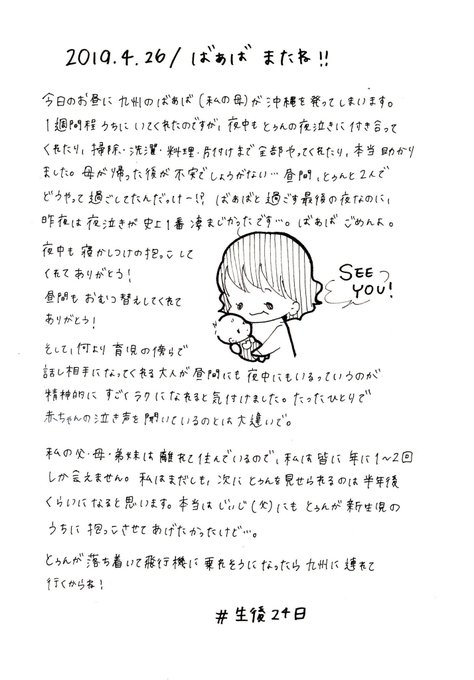 2019.4.26/ ばぁば またね!!
今日のお昼に 九州のばぁば(私の母)が 沖縄を発ってしまいます。
1週間程 うちに いてくれたのですが、夜中も とぅんの夜泣きに付き合って
くれたり、掃除・洗濯・料理・片付けまで全部やってくれたり、本当 助かり
ました。母が帰った後が 不安でしょうがない… 昼間、とぅんと2人で
どうやって過ごしてたんだっけ〜!? ばぁばと過ごす最後の夜なのに、
昨夜は 夜泣きが 史上1番 凄まじかったです…。ばぁば ごめんよ。
夜中も 寝かしつけの抱っこして
くれて ありがとう!
昼間も おむつ替えしてくれて
ありがとう!
SEE
YOU!
そして、何より 育児の傍らで
話し相手になってくれる大人が 昼間にも 夜中にもいるっていうのが
精神的に すごくラクに なれると気付けました。たったひとりで
赤ちゃんの泣き声を聞いているのとは大違いで。
私の父・母・弟妹は 離れて住んでいるので、私は皆に 年に1〜2回
しか会えません。私はまだしも、次に とぅんを見せられるのは 半年後
くらいになると思います。本当は じぃじ(父)にも とぅんが 新生児の
うちに 抱っこさせてあげたかったけど…。
とぅんが 落ち着いて飛行機に 乗れそうになったら 九州に 連れて
行くからね!
#生後24日